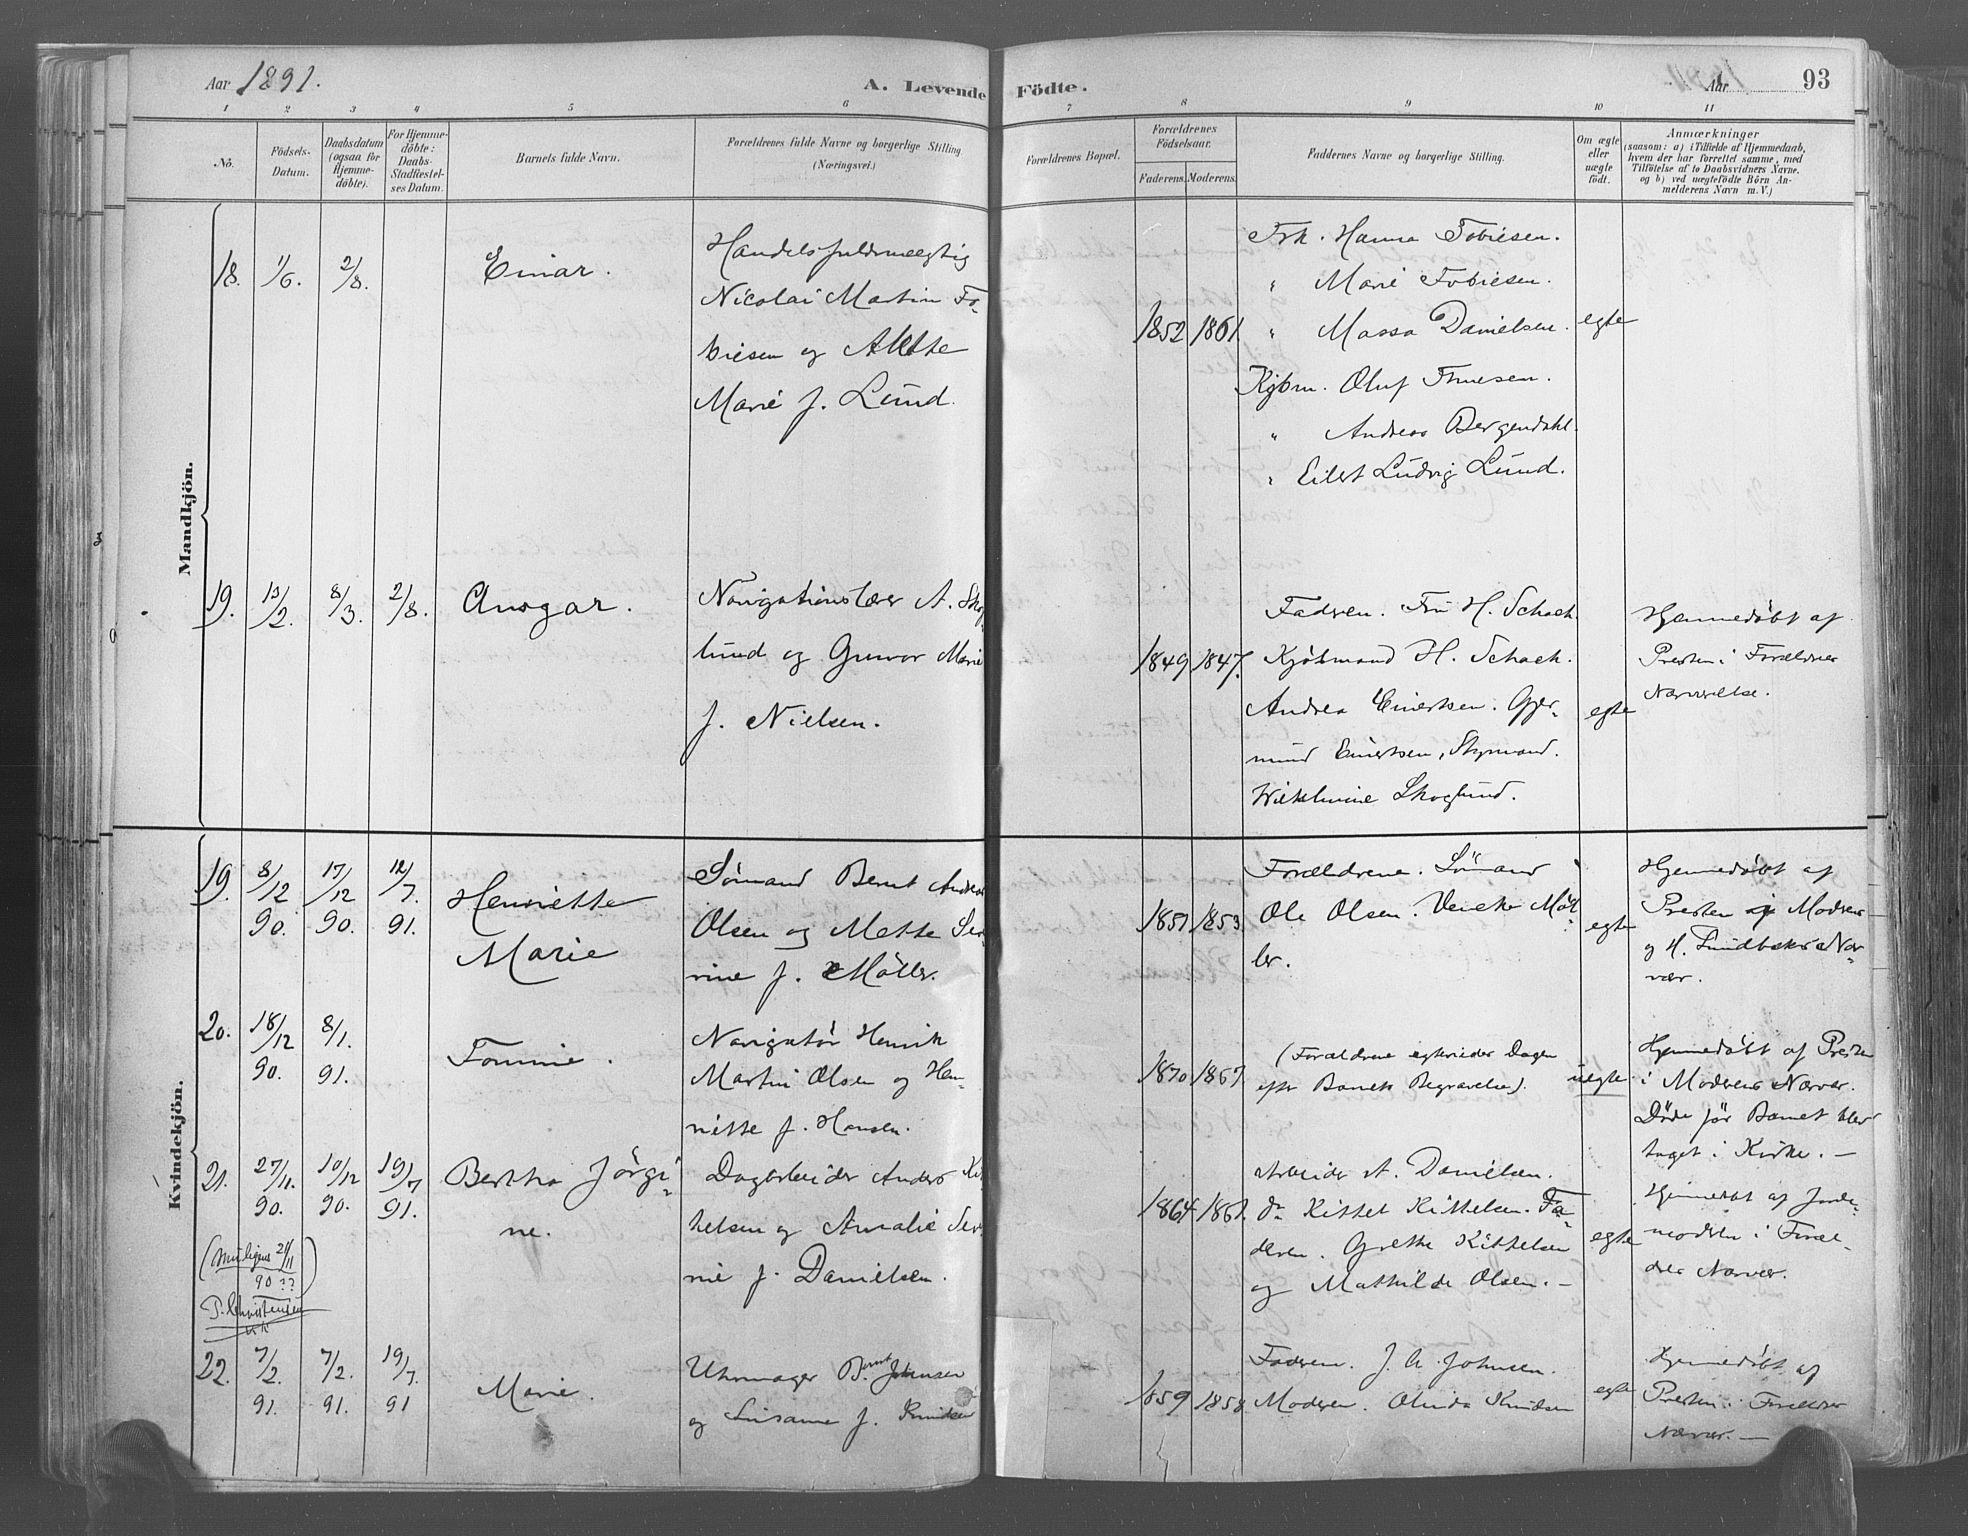 Aar 1891. A. Levende Födte. Aar 93
1 2 3 4 5 6 7 8 9 10 11
No.
Födsels-
Datum.
Daabsdatum
(ogsaa for
Hjemme-
döbte).
For Hjemme-
döbte:
Daabs-
Stadfæstel-
ses Datum.
Barnets fulde Navn.
Forældrenes fulde Navne og borgerlige Stilling
(Næringsvei.)
Forældrenes Bopæl.
Forældrenes
Födselsaar.
Faderens. Moderens.
Faddernes Navne og borgerlige Stilling.
Om ægte
eller
uægte
födt.
Anmærkninger
(saasom: a) i Tilfælde af Hjemmedaab,
hvem der har forrettet samme, med
Tilföielse af to Daabsvidners Navne.
og b) ved uægtefödte Börn An-
melderens Navn m. V.)
Mandkjön.
18. 1/6. 2/8. Einar.
Handelsfuldmægtig
Nicolai Martin To-
biesen og Alette
Marie f. Lund.
1852 1861.
Frk. Hanna Tobiesen.
" Marie Tobiesen.
" Massa Danielsen.
Kjbm. Oluf Thuesen.
" Andreas Bergendahl.
" Eilert Ludvig Lund.
egte
19. 13/2. 8/3. 2/8. Ansgar.
Navigationslærer A. Skog-
lund og Gunvor Marie
f. Nielsen.
1849 1847.
Fadren. Fru H. Schach.
Kjöbmand H. Schach.
Andrea Einertsen. Gjer-
mund Einertsen, Styrmand.
Wilhelmine Skoglund.
egte
Hjemmedöbt af
Presten i Forældres
Nærværelse.
Kvindekjön.
19. 8/12 90. 17/12 90. 12/7. 91.
Henriette
Marie
Sömand Bernt Andreas
Olsen og Mette Ser-
rine f. Möller.
1851 1853
Forældrene. Sömand
Ole Olsen. Vencke Möl-
ler.
egte
Hjemmedöbt af
Presten i Modrens
og H. Nær-
vær.
20. 18/12 90. 8/1. 91.
Tommie.
Navigatör Henrik
Martin Olsen og Hen-
riette f. Hansen.
1870 1867
(Forældrene egtevieder Dagen
efter Barnets Begravelse).
uegte
Hjemmedöbt af Presten
i Moderens Nærvær.
Döde för Barnet blev
taget i Kirke. —
21. 27/11. 90. 10/12 90. 19/7 91.
Bertha Jörgi-
ne.
Dagarbeider Anders Kit-
telsen og Amalie Ser-
nie f. Danielsen.
1864 1861.
Arbeider A. Danielsen.
do Kittel Kittelsen. Fa-
deren. Grethe Kittelsen
og Mathilde Olsen. —
egte
Hjemmedöbt af Jorde-
modren i Foræl-
dres Nærvær.
(Muligens 21/11
90 ??)
P. Christensen
22. 7/2. 91. 7/2. 91. 19/7. 91
Marie.
Uhrmager Bernt Johnsen
og Susanne f. Knudsen
1859 1858
Fadren. J. A. Johnsen.
Moderen. Olinda Knudsen
egte
Hjemmedöbt af
Presten i Forældres
Nærvær. —